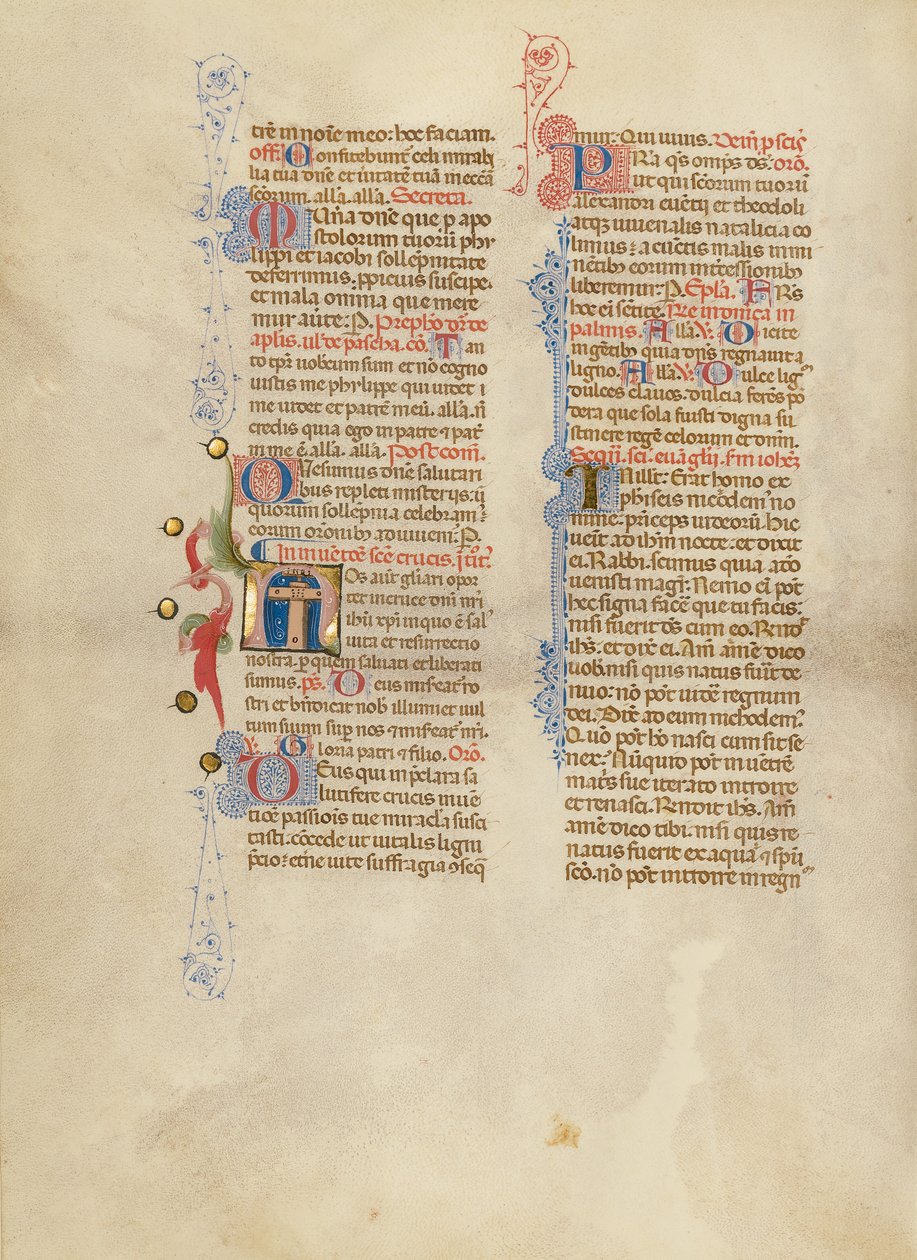 trē in noīe meo: hoc faciam.
off. Confitebunt̄ celi mirabi
lia tua dn̄e et uītatē tuā in ecc̄a
scōrum. all̄a. all̄a. Secreta.
Munera dn̄e que p apo
stolorum tuorū phy
lippi et iacobi sollepnitate
deferrimus. ppicius suscipe.
et mala omnia que mere
mur aūte: P. Prephō dr̄ de
aplis. ul' de pascha. cō. Tan
to tp̄r uobcum sum et nō cogno
uistis me phylippe qui uidet
me uidet et patrē meū. all̄a. n̄
credis quia ego in patre et pat̄
in me ē. all̄a. all̄a. Postcom̄.
Quesumus dn̄e salutari
bus repleti misterijs: ut
quorum sollepnia celebram':
eorum orōnib; adiuuem̄: P.
In inuētōe scē crucis. Int̄.
Nos aūt gl̄iari opor
tet in cruce dn̄i nr̄i
ihū xp̄i in quo ē sal'
uita et resurrectio
nostra. p quem saluati et liberati
sumus. ps̄. Deus miseat̄ no
stri et bn̄dicat nob illumiet uul
tum suum sup nos ⁊ miseat̄ nr̄i.
V. Gloria patri ⁊ filio. Orō.
Deus qui in p̄clara sa
lutifere crucis inuē
tiōē passiois tue miracl̄a susci
tasti. cōcede ut uitalis ligni
p̄cio: et̄ne uite suffragia ꝯseq̄
mur: Qui uiuis. Deīn p scīs
PRa qs omps ds: orō.
ut qui scōrum tuorū
alexandri euētij et theodoli
atq; iuuenalis natalicia co
limus: a cūctis malis immi
nētib; eorum int̄cessionib;
liberemur: P. Epl̄a. Frs̄
hoc ei sētite. Rē in dōnica in
palmis. All̄a. V. Dicite
in gētib; quia dn̄s regnauit a
ligno. All̄a. V. Dulce lig'
dulces clauos. dulcia ferēs pō
dera que sola fuisti digna su
stinere regē celorum et dnm̄.
Sequ. sci. euāglii. scd'm iohēz
In illt̄: Erat homo ex
phiseis nicōdem' no
mine: prīceps iudeorū. hic
uēit ad ihm̄ nocte: et dixit
ei. Rabbi. scimus quia a do
uenisti magr̄: Nemo ei pōt
hec signa facē que tu facis:
nisi fuerit ds̄ cum eo. Rn̄d'
ihs̄: et dix̄ ei. Am̄ amē dico
uob. nisi quis natus fuīt de
nuo: nō pōt uidē regnum
dei. Dix̄ ad eum nichodem'.
Quō pōt hō nasci cum sit se
nex: Nūquid pōt in uētrē
mat̄s sue iterato introire
et renasci. Rn̄dit ihs̄. Am̄
amē dico tibi. nisi quis re
natus fuerit ex aqua ⁊ sp̄u
scō. nō pōt introire in regn'